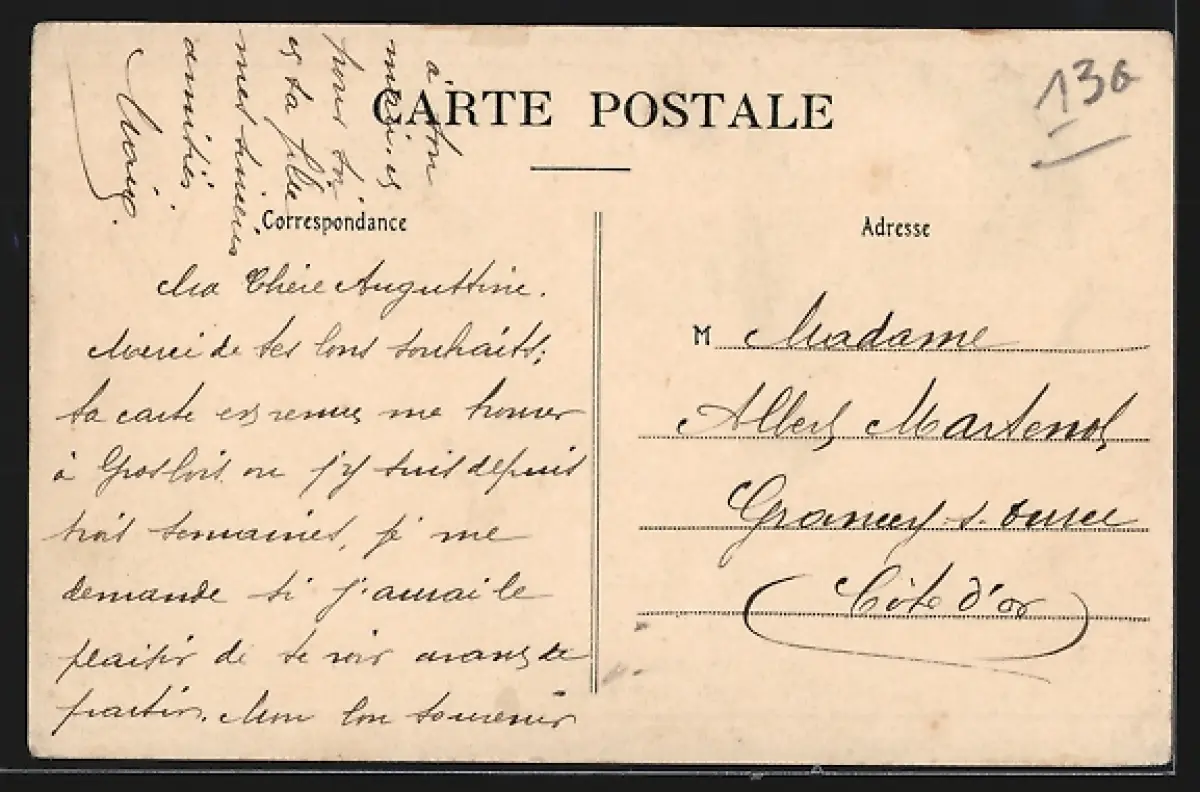 CARTE POSTALE
130
Correspondance
Ma Chère Augustine.
Merci de tes bons souhaits;
ta carte est venue me trouver
à Grosbois ou j'y suis depuis
trois semaines, je me
demande si j'aurai le
plaisir de te voir avant de
partir. Mon bon souvenir
à ton
mari et
pour toi
et ta fille
mes sincères
amitiés
Adresse
M Madame
Albert Martenot
Grancey s. Ource
Côte d'or